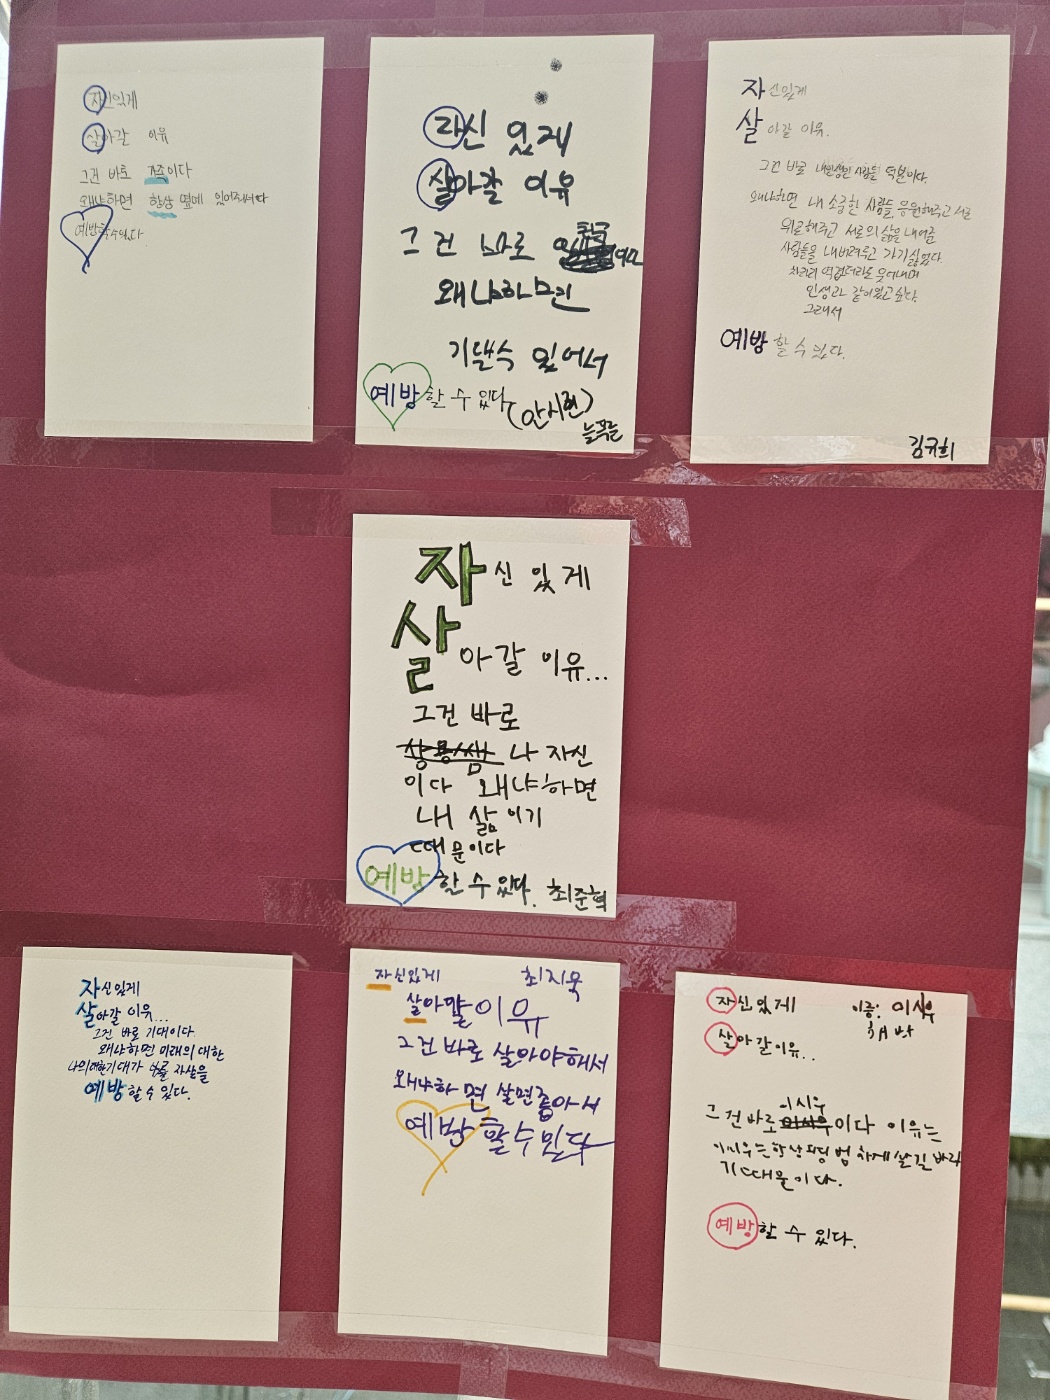 자신있게
살아갈 이유
그건 바로 가족이다
왜냐하면 항상 옆에 있어줘서다
예방할 수 있다.
자신 있게
살아갈 이유
그건 바로 친구
왜냐하면
기댈수 있어서
예방할 수 있다.(안시현)
늘푸른
자신있게
살아갈 이유.
그건 바로 내 인생의 사람들 덕분이다.
왜냐하면 내 소중한 사람들, 응원해주고 서로
위로해주고 서로의 삶을 내어준
사람들을 내버려두고 가기 싫었다.
차라리 역겹더라도 웃어내며
인생과 같이 웃고 싶다.
그래서
예방할 수 있다.
김규희
자신 있게
살아갈 이유...
그건 바로
상용쌤 나 자신
이다 왜냐하면
내 삶이기
때문이다
예방할 수 있다. 최준혁
자신있게
살아갈 이유...
그건 바로 기대이다
왜냐하면 미래의 대한
나의 대한 기대가 나를 자살을
예방 할 수 있다.
자신있게 최지욱
살아갈 이유
그건 바로 살아야해서
왜냐하면 살면좋아서
예방할수있다
자신있게 이름: 이시우
살아갈이유..
그건 바로 이시우이다 이유는
이시우는 항상 평범하게 살길 바라
기 때문이다.
예방할 수 있다.